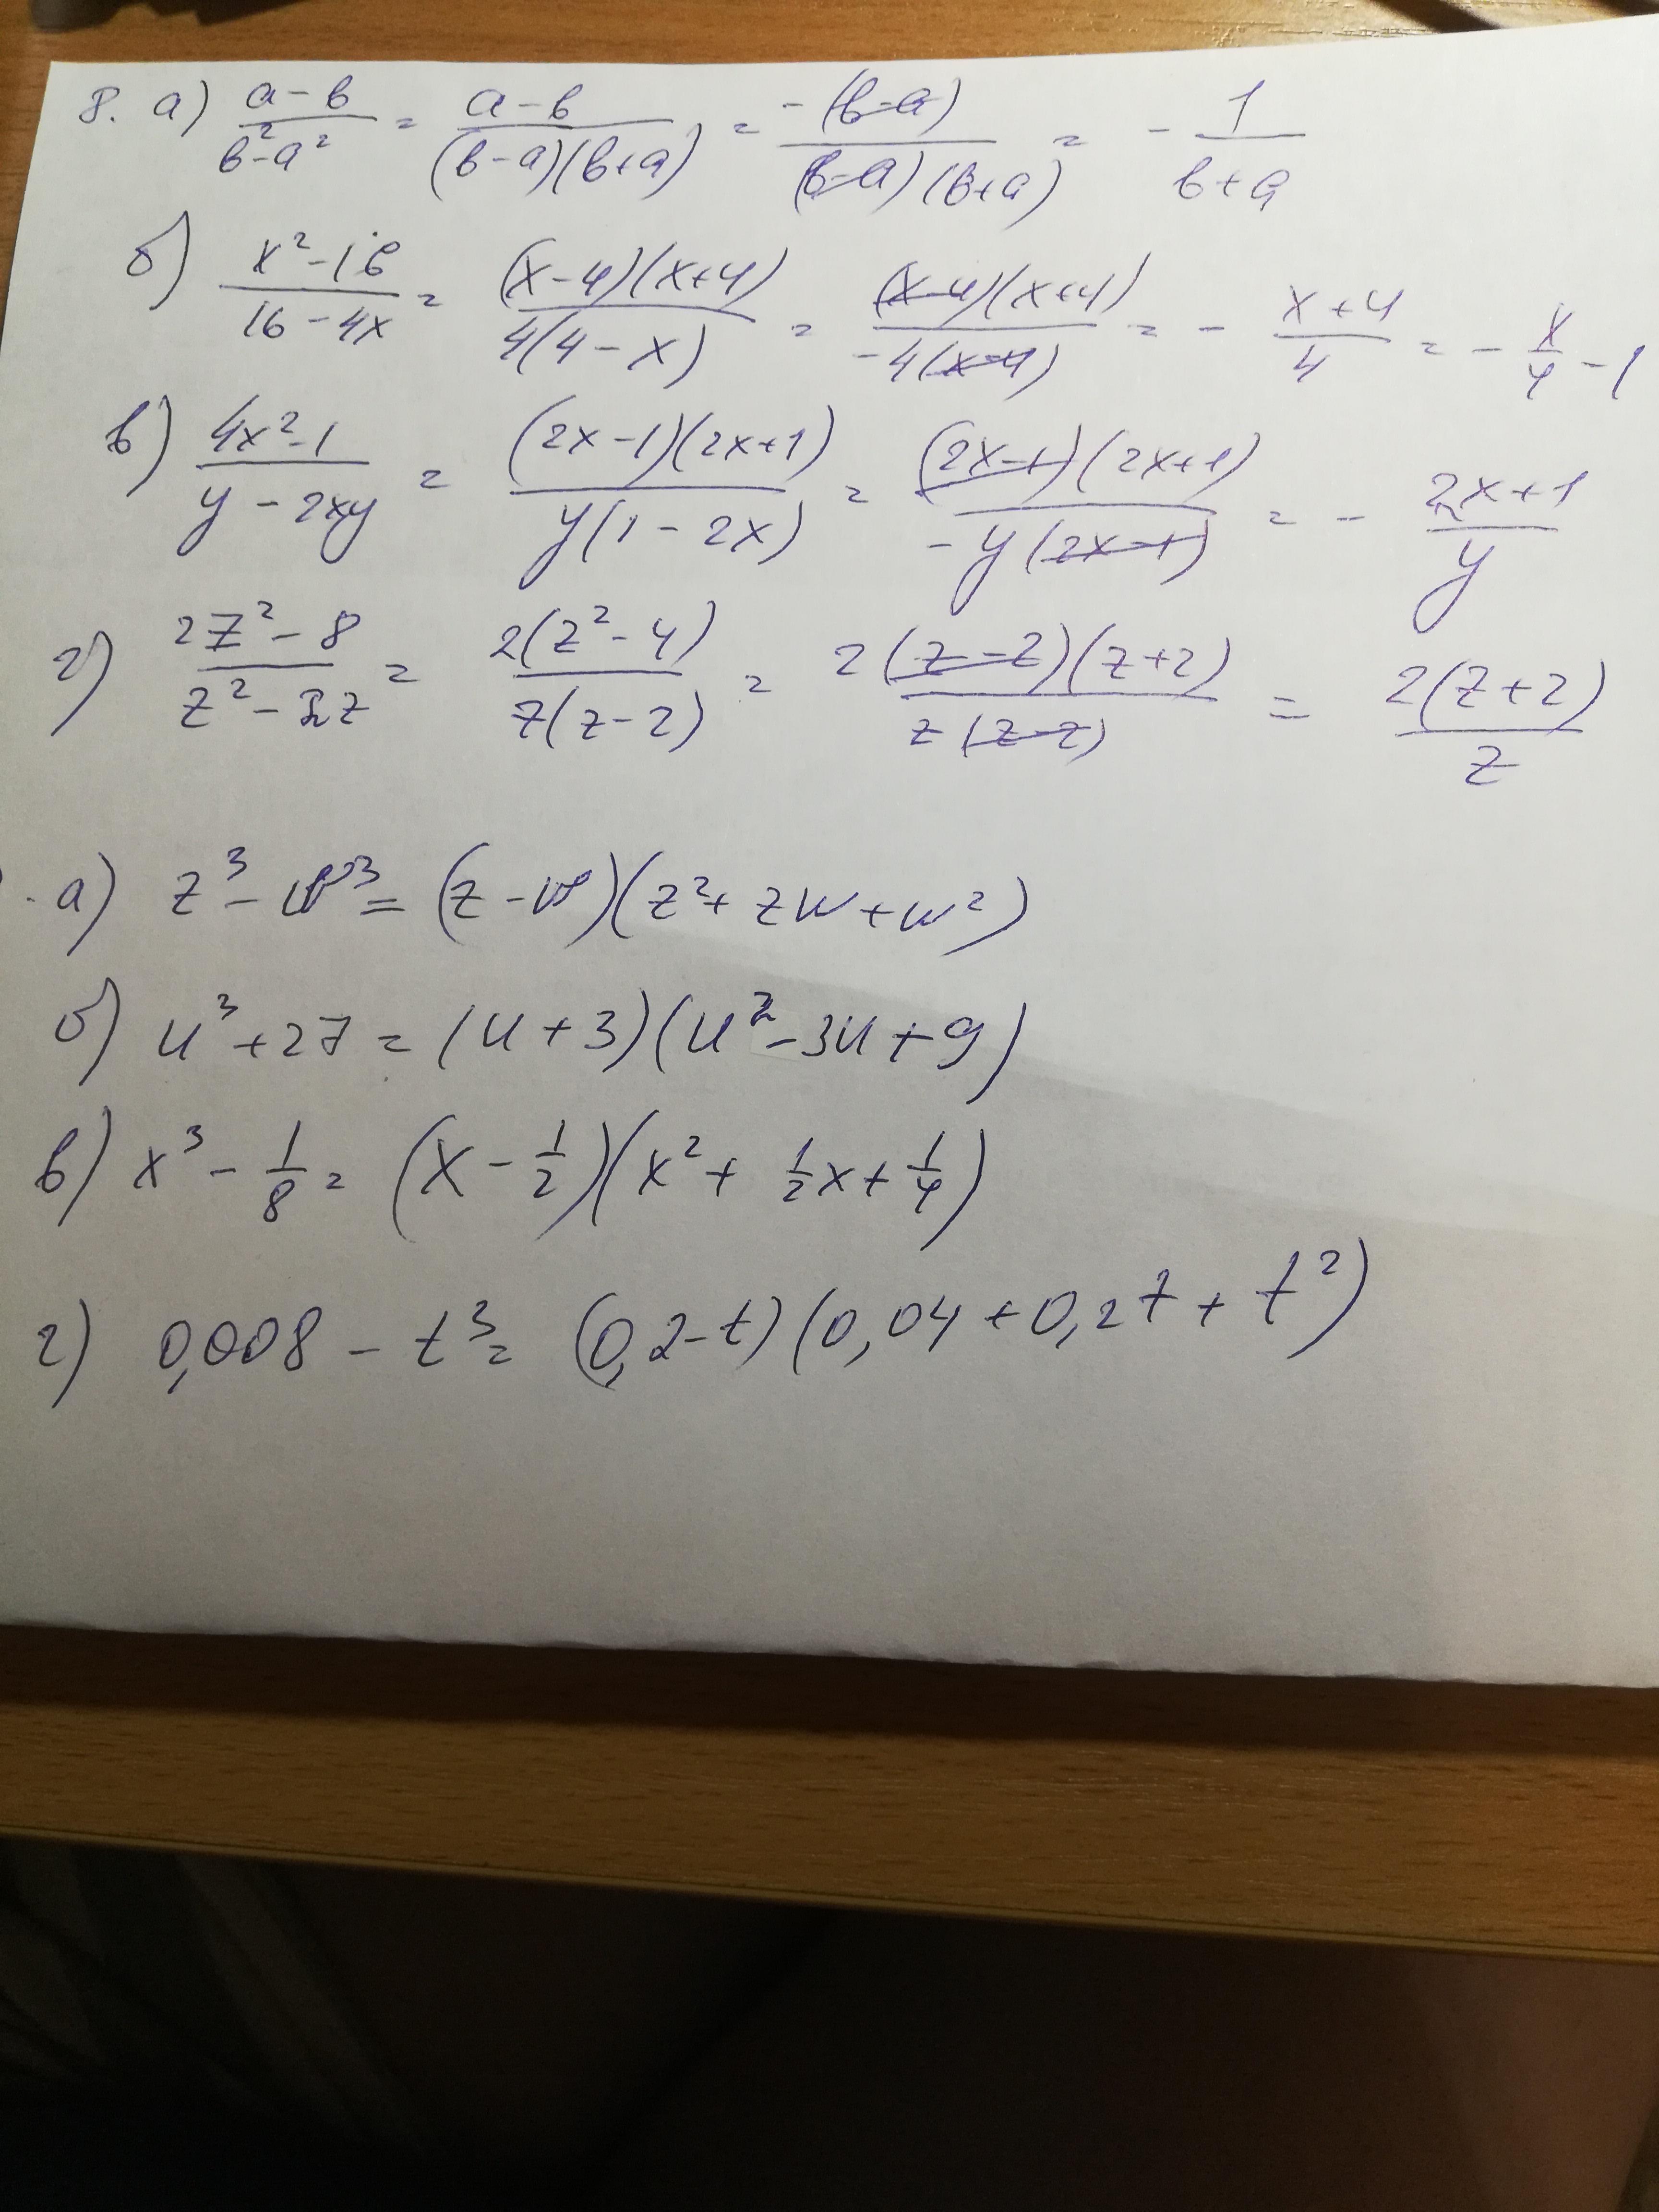 8. а) (a-b)/(b²-a²) = (a-b)/((b-a)(b+a)) = -(b-a)/((b-a)(b+a)) = -1/(b+a)
б) (x²-16)/(16-4x) = ((x-4)(x+4))/(4(4-x)) = ((x-4)(x+4))/(-4(x-4)) = -(x+4)/4 = -x/4 -1
в) (4x²-1)/(y-2xy) = ((2x-1)(2x+1))/(y(1-2x)) = ((2x-1)(2x+1))/(-y(2x-1)) = -(2x+1)/y
г) (2z²-8)/(z²-2z) = (2(z²-4))/(z(z-2)) = (2(z-2)(z+2))/(z(z-2)) = (2(z+2))/z
а) z³-w³ = (z-w)(z²+zw+w²)
б) u³+27 = (u+3)(u²-3u+9)
в) x³-1/8 = (x-1/2)(x²+1/2x+1/4)
г) 0,008-t³ = (0,2-t)(0,04+0,2t+t²)